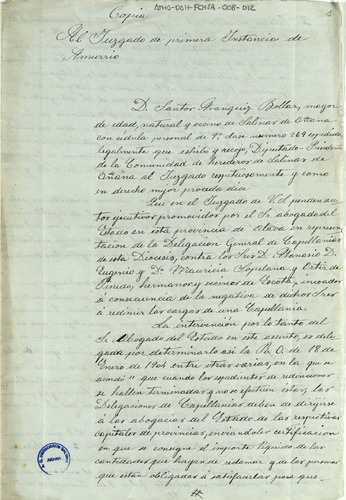 ATHG-DAH-FCHSA-008-012
Copia
Al Juzgado de primera Instancia de
Amurrio
D. Santos Aranguiz Bollar, mayor
de edad, natural y vecino de Salinas de Añana
con cédula personal de 9ª clase número 269 expedida
legalmente que exhibe y recoge, Diputado-Presidente
de la Comunidad de Herederos de Salinas de
Añana al Juzgado respetuosamente y como
en derecho mejor proceda dice
Que en el Juzgado de V.S. penden au-
tos ejecutivos promovidos por el Sr. abogado del
Estado en esta provincia de Alava en represen-
tación de la Delegación General de Capellanías
de esta Diócesis, contra los Sres D. Atanasio D.
Eugenio y Dª Mauricia Copelana y Ortiz de
Pinedo, hermanos y vecinos de Escota, incoados
á consecuencia de la negativa de dichos Sres
á redimir las cargas de una Capellanía.
La intervención por lo tanto del
Sr. Abogado del Estado en este asunto, es dele-
gada por determinarlo así la R.O. de 18 de
Enero de 1904 entre otras varias, en la que se
acordó "que cuando los expedientes de redenciones
se hallen terminados y no se efectúen estas, las
Delegaciones de Capellanías deben de dirigirse
á los abogacías del Estado de las respectivas
capitales de provincias, enviándoles certificación
en que se consigne el importe líquido de las
cantidades que hayan de redimir y de las personas
que están obligadas á satisfacerlas para que